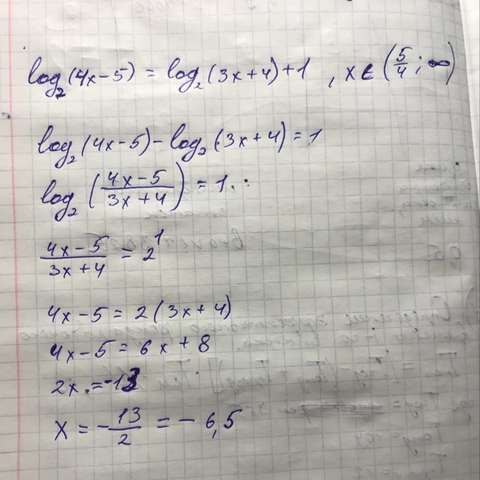 log₂(4x-5) = log₂(3x+4)+1, x ∈ (5/4; ∞)
log₂(4x-5) - log₂(3x+4) = 1
log₂((4x-5)/(3x+4)) = 1.
(4x-5)/(3x+4) = 2¹
4x-5 = 2(3x+4)
4x-5 = 6x+8
2x = -13
x = -13/2 = -6,5